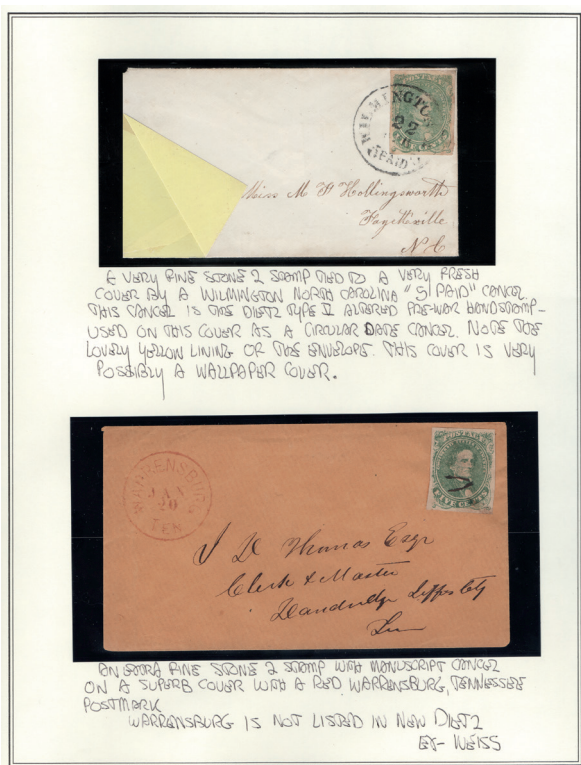 WILMINGTON
22
PAID
POSTAGE
Miss M Hollingsworth
Fayetteville
N C
A VERY FINE STONE 2 STAMP TIED TO A VERY FRESH
COVER BY A WILMINGTON NORTH CAROLINA "5/PAID" CANCEL
THIS CANCEL IS THE DIETZ TYPE II ALTERED PRE-WAR HANDSTAMP-
USED ON THIS COVER AS A CIRCULAR DATE CANCEL. NOTE THE
LOVELY YELLOW LINING OF THE ENVELOPE. THIS COVER IS VERY
POSSIBLY A WALLPAPER COVER.
WARRENSBURG
JAN
20
TEN
POSTAGE
FIVE CENTS
J D Thomas Esqr
Clerk & Master
Dandridge Jefferson Cty
Ten
AN EXTRA FINE STONE 2 STAMP WITH MANUSCRIPT CANCEL
ON A SUPERB COVER WITH A RED WARRENSBURG, TENNESSEE
POSTMARK
WARRENSBURG IS NOT LISTED IN NEW DIETZ
EX- WEISS